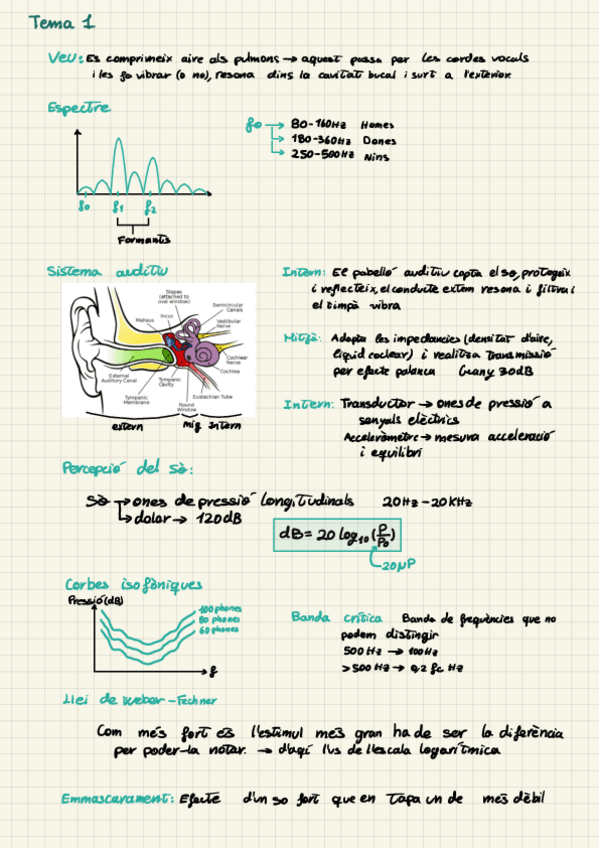 Tema 1
Veu: Es comprimeix aire als pulmons → aquest passa per les cordes vocals
i les fa vibrar (o no), resona dins la cavitat bucal i surt a l'exterior.
Espectre
fo → 80-160Hz Homes
→ 180-360Hz Dones
→ 250-500Hz Nins
fo f1 f2
Formants
Sistema auditiu
Stapes
(attached to
oval window)
Incus
Malleus
Semicircular
Canals
Vestibular
Nerve
Cochlear
Nerve
Cochlea
External
Auditory Canal
Tympanic
Cavity
Eustachian Tube
Tympanic
Membrane
Round
Window
extern mig Intern
Intern: El pabelló auditiu capta el so, protegeix
i reflecteix, el conducte extern resona i filtra i
el timpà vibra
Mitjà: Adapta les impedàncies (densitat d'aire,
líquid coclear) i realitza transmissió
per efecte palanca Guany 30dB
Intern: Transductor → ones de pressió a
senyals elèctrics
Acceleròmetre → mesura acceleració
i equilibri
Percepció del sò:
Sò → ones de pressió longitudinals 20Hz - 20KHz
→ dolor → 120dB
dB = 20 log10 (P/Po)
20µP
Corbes isofòniques
Pressió(dB)
100 phones
80 phones
60 phones
f
Banda crítica Banda de freqüències que no
podem distingir
500Hz → 100Hz
>500Hz → 0,2 fc Hz
Llei de Weber - Fechner
Com més fort és l'estímul més gran ha de ser la diferència
per poder-la notar. → d'aquí l'us de l'escala logarítmica
Emmascarament: Efecte d'un so fort que en tapa un de més dèbil